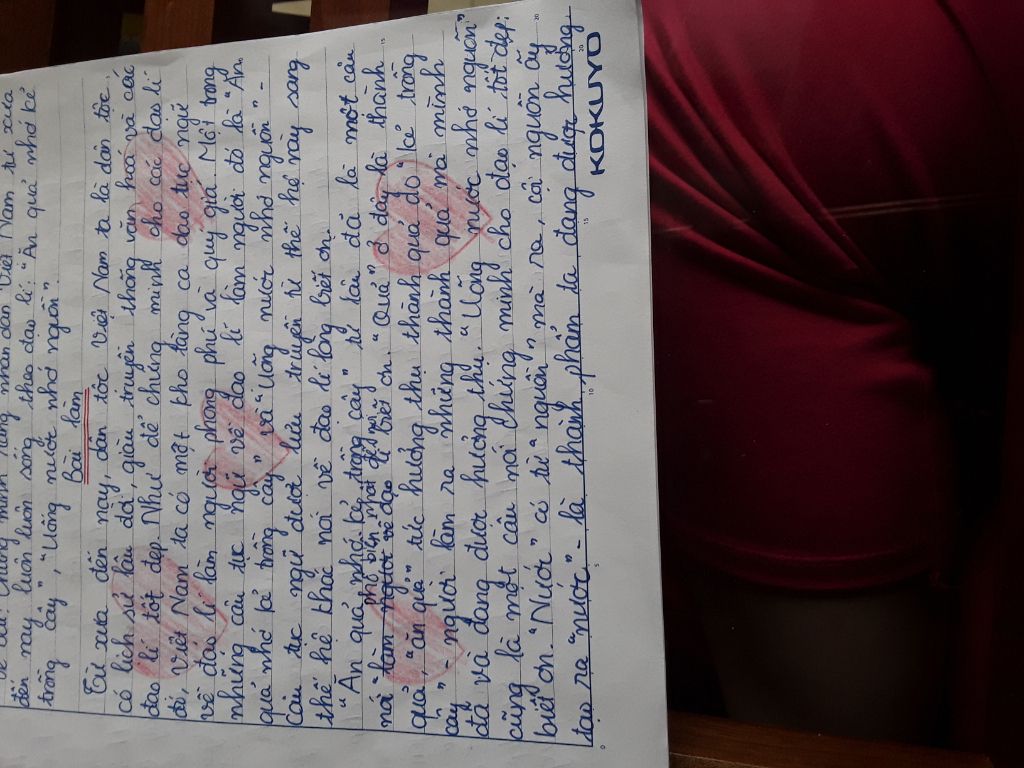 đến nay luôn luôn sống theo đạo lí: "Ăn quả nhớ kẻ
trồng cây", "Uống nước nhớ nguồn".
Bài làm
Từ xưa đến nay, dân tộc Việt Nam ta là dân tộc,
có lịch sử lâu đời, giàu truyền thống văn hoá và các
đạo lí tốt đẹp. Như để chứng minh cho các đạo lí
đó, Việt Nam ta có một kho tàng ca dao tục ngữ
về đạo lí làm người phong phú và quý giá. Một trong
những câu tục ngữ về đạo lí làm người đó là "Ăn
quả nhớ kẻ trồng cây" và "Uống nước nhớ nguồn" -
Câu tục ngữ được lưu truyền từ thế hệ này sang
thế hệ khác nói về đạo lí lòng biết ơn.
"Ăn quả nhớ kẻ trồng cây" từ lâu đã là một câu
nói phổ biến mọi để nói
về đạo lí biết ơn. "Quả" ở đây là thành
quả, "ăn quả" tức hưởng thụ thành quả đó, "kẻ trồng
cây" - người làm ra những thành quả mà mình
đã và đang được hưởng thụ. "Uống nước nhớ nguồn"
cũng là một câu nói chứng minh cho đạo lí tốt đẹp:
biết ơn. "Nước" có từ "nguồn" mà ra, cội nguồn ấy
tạo ra "nước" - là thành phẩm ta đang được hưởng,
KOKUYO